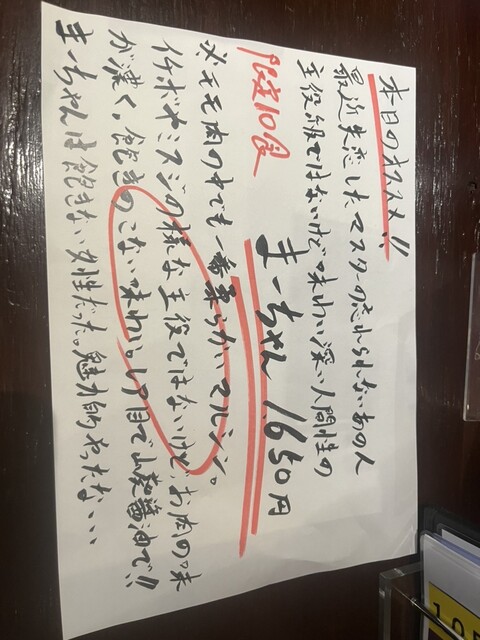 本日のオススメ!!
最近失恋したマスターの忘れられないあの人
主役級ではないけど味わい深い人間性の
まーちゃん 1,650円
限定10食
※モモ肉の中でも一番柔らかいマルシン。
イチボやミスジの様な主役ではないけど、お肉の味
が濃く、飽きのこない味わい。1口目で山葵醤油で!!
まーちゃんは飽きない女性だった。魅力的やったな、、、